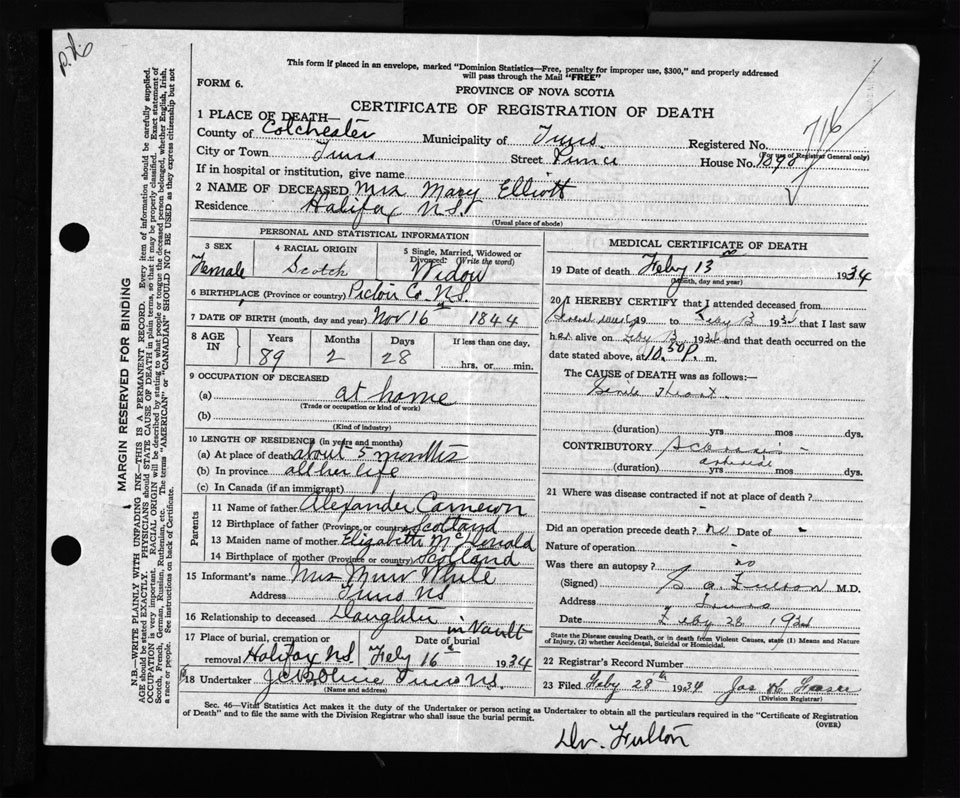 This form if placed in an envelope, marked "Dominion Statistics—Free, penalty for improper use, $300," and properly addressed
will pass through the Mail "FREE"
FORM 6.
PROVINCE OF NOVA SCOTIA
CERTIFICATE OF REGISTRATION OF DEATH
716
1 PLACE OF DEATH—
County of Colchester Municipality of Truro Registered No.
(For use of Registrar General only)
City or Town Truro Street Prince House No.
If in hospital or institution, give name
2 NAME OF DECEASED Mrs Mary Elliott
Residence Halifax N.S.
(Usual place of abode)
PERSONAL AND STATISTICAL INFORMATION
3 SEX Female
4 RACIAL ORIGIN Scotch
5 Single, Married, Widowed or
Divorced: (Write the word)
Widow
6 BIRTHPLACE (Province or country) Pictou Co. N.S.
7 DATE OF BIRTH (month, day and year) Nov 16th 1844
8 AGE IN
Years Months Days If less than one day,
89 2 28
hrs. or min.
9 OCCUPATION OF DECEASED
(a) at home
(Trade or occupation or kind of work)
(b)
(Kind of industry)
10 LENGTH OF RESIDENCE (in years and months)
(a) At place of death about 5 months
(b) In province all her life
(c) In Canada (if an immigrant)
Parents
11 Name of father Alexander Cameron
12 Birthplace of father (Province or country) Scotland
13 Maiden name of mother Elizabeth McDonald
14 Birthplace of mother (Province or country) Scotland
15 Informant's name Mrs White
Address Truro NS
16 Relationship to deceased Daughter
in Vault
17 Place of burial, cremation or Date of burial
removal Halifax NS Feby 16th 1934
18 Undertaker Truro N.S.
(Name and address)
MEDICAL CERTIFICATE OF DEATH
19 Date of death Feby 13th 1934
(Month, day and year)
20 I HEREBY CERTIFY that I attended deceased from
Several weeks 19 to Feby 13 1934 that I last saw
her alive on Feby 13 1934 and that death occurred on the
date stated above, at 10.50 P. m.
The CAUSE of DEATH was as follows:—
Senile Heart
(duration) yrs mos dys.
CONTRIBUTORY
(duration) yrs mos dys.
21 Where was disease contracted if not at place of death?
-
Did an operation precede death? no Date of -
Nature of operation -
Was there an autopsy? no
(Signed) Fulton M.D.
Address Truro
Feby 28 1934
State the Disease causing Death, or in death from Violent Causes, state (1) Means and Nature
of Injury, (2) whether Accidental, Suicidal or Homicidal.
22 Registrar's Record Number
23 Filed Feby 28th 1934 Jas
(Division Registrar)
Sec. 46—Vital Statistics Act makes it the duty of the Undertaker or person acting as Undertaker to obtain all the particulars required in the "Certificate of Registration
of Death" and to file the same with the Division Registrar who shall issue the burial permit.
(OVER)
Dr. Fulton
MARGIN RESERVED FOR BINDING
N.B.—WRITE PLAINLY WITH UNFADING INK—THIS IS A PERMANENT RECORD. Every item of information should be carefully supplied.
AGE should be stated EXACTLY. PHYSICIANS should STATE CAUSE OF DEATH in plain terms, so that it may be properly classified. Exact statement of
OCCUPATION is very important. RACIAL ORIGIN will be described by stating to what people or tongue the deceased person belonged, whether English, Irish,
Scotch, French, German, Russian, Ruthenian, etc. The terms "AMERICAN" or "CANADIAN" SHOULD NOT BE USED as they express citizenship but not
a race or people. See instructions on back of Certificate.